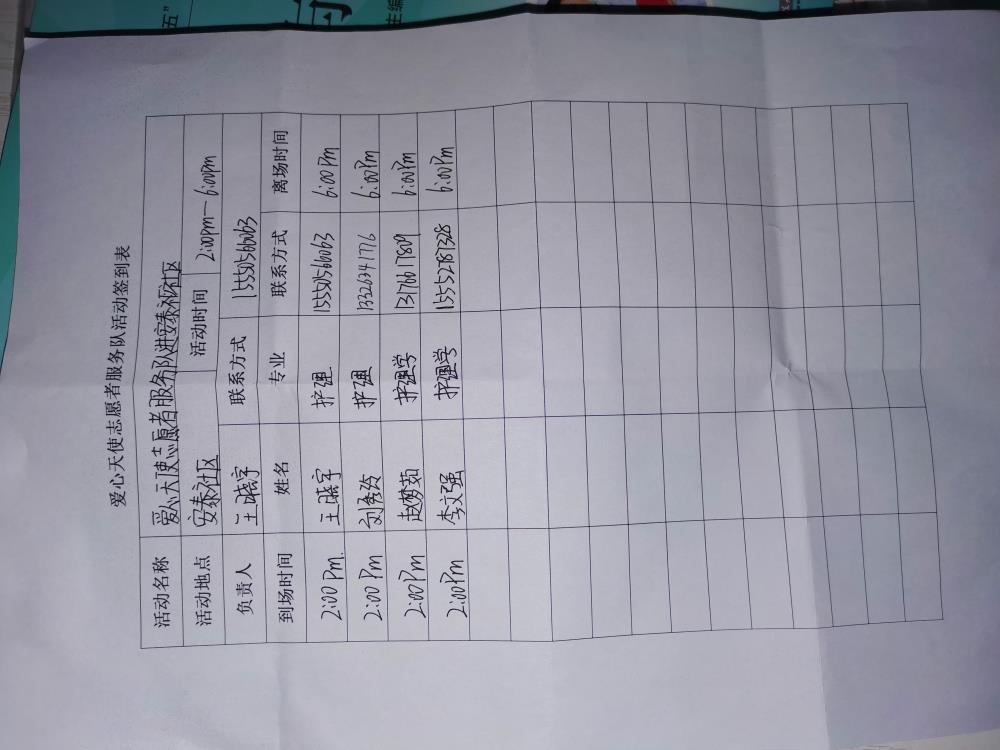 五”
主编
爱心天使志愿者服务队活动签到表
活动名称 爱心天使志愿者服务队进安泰社区
活动地点 安泰社区 活动时间 2:00pm—6:00pm
负责人 王晓宇 联系方式 15550566063
到场时间 姓名 专业 联系方式 离场时间
2:00 Pm. 王晓宇 护理 15550566063 6:00 Pm
2:00 Pm 刘秀玲 护理 13326341776 6:00 Pm
2:00 Pm 赵梦茹 护理学 13176617809 6:00 Pm
2:00 Pm 李文强 护理学 15552787328 6:00 Pm